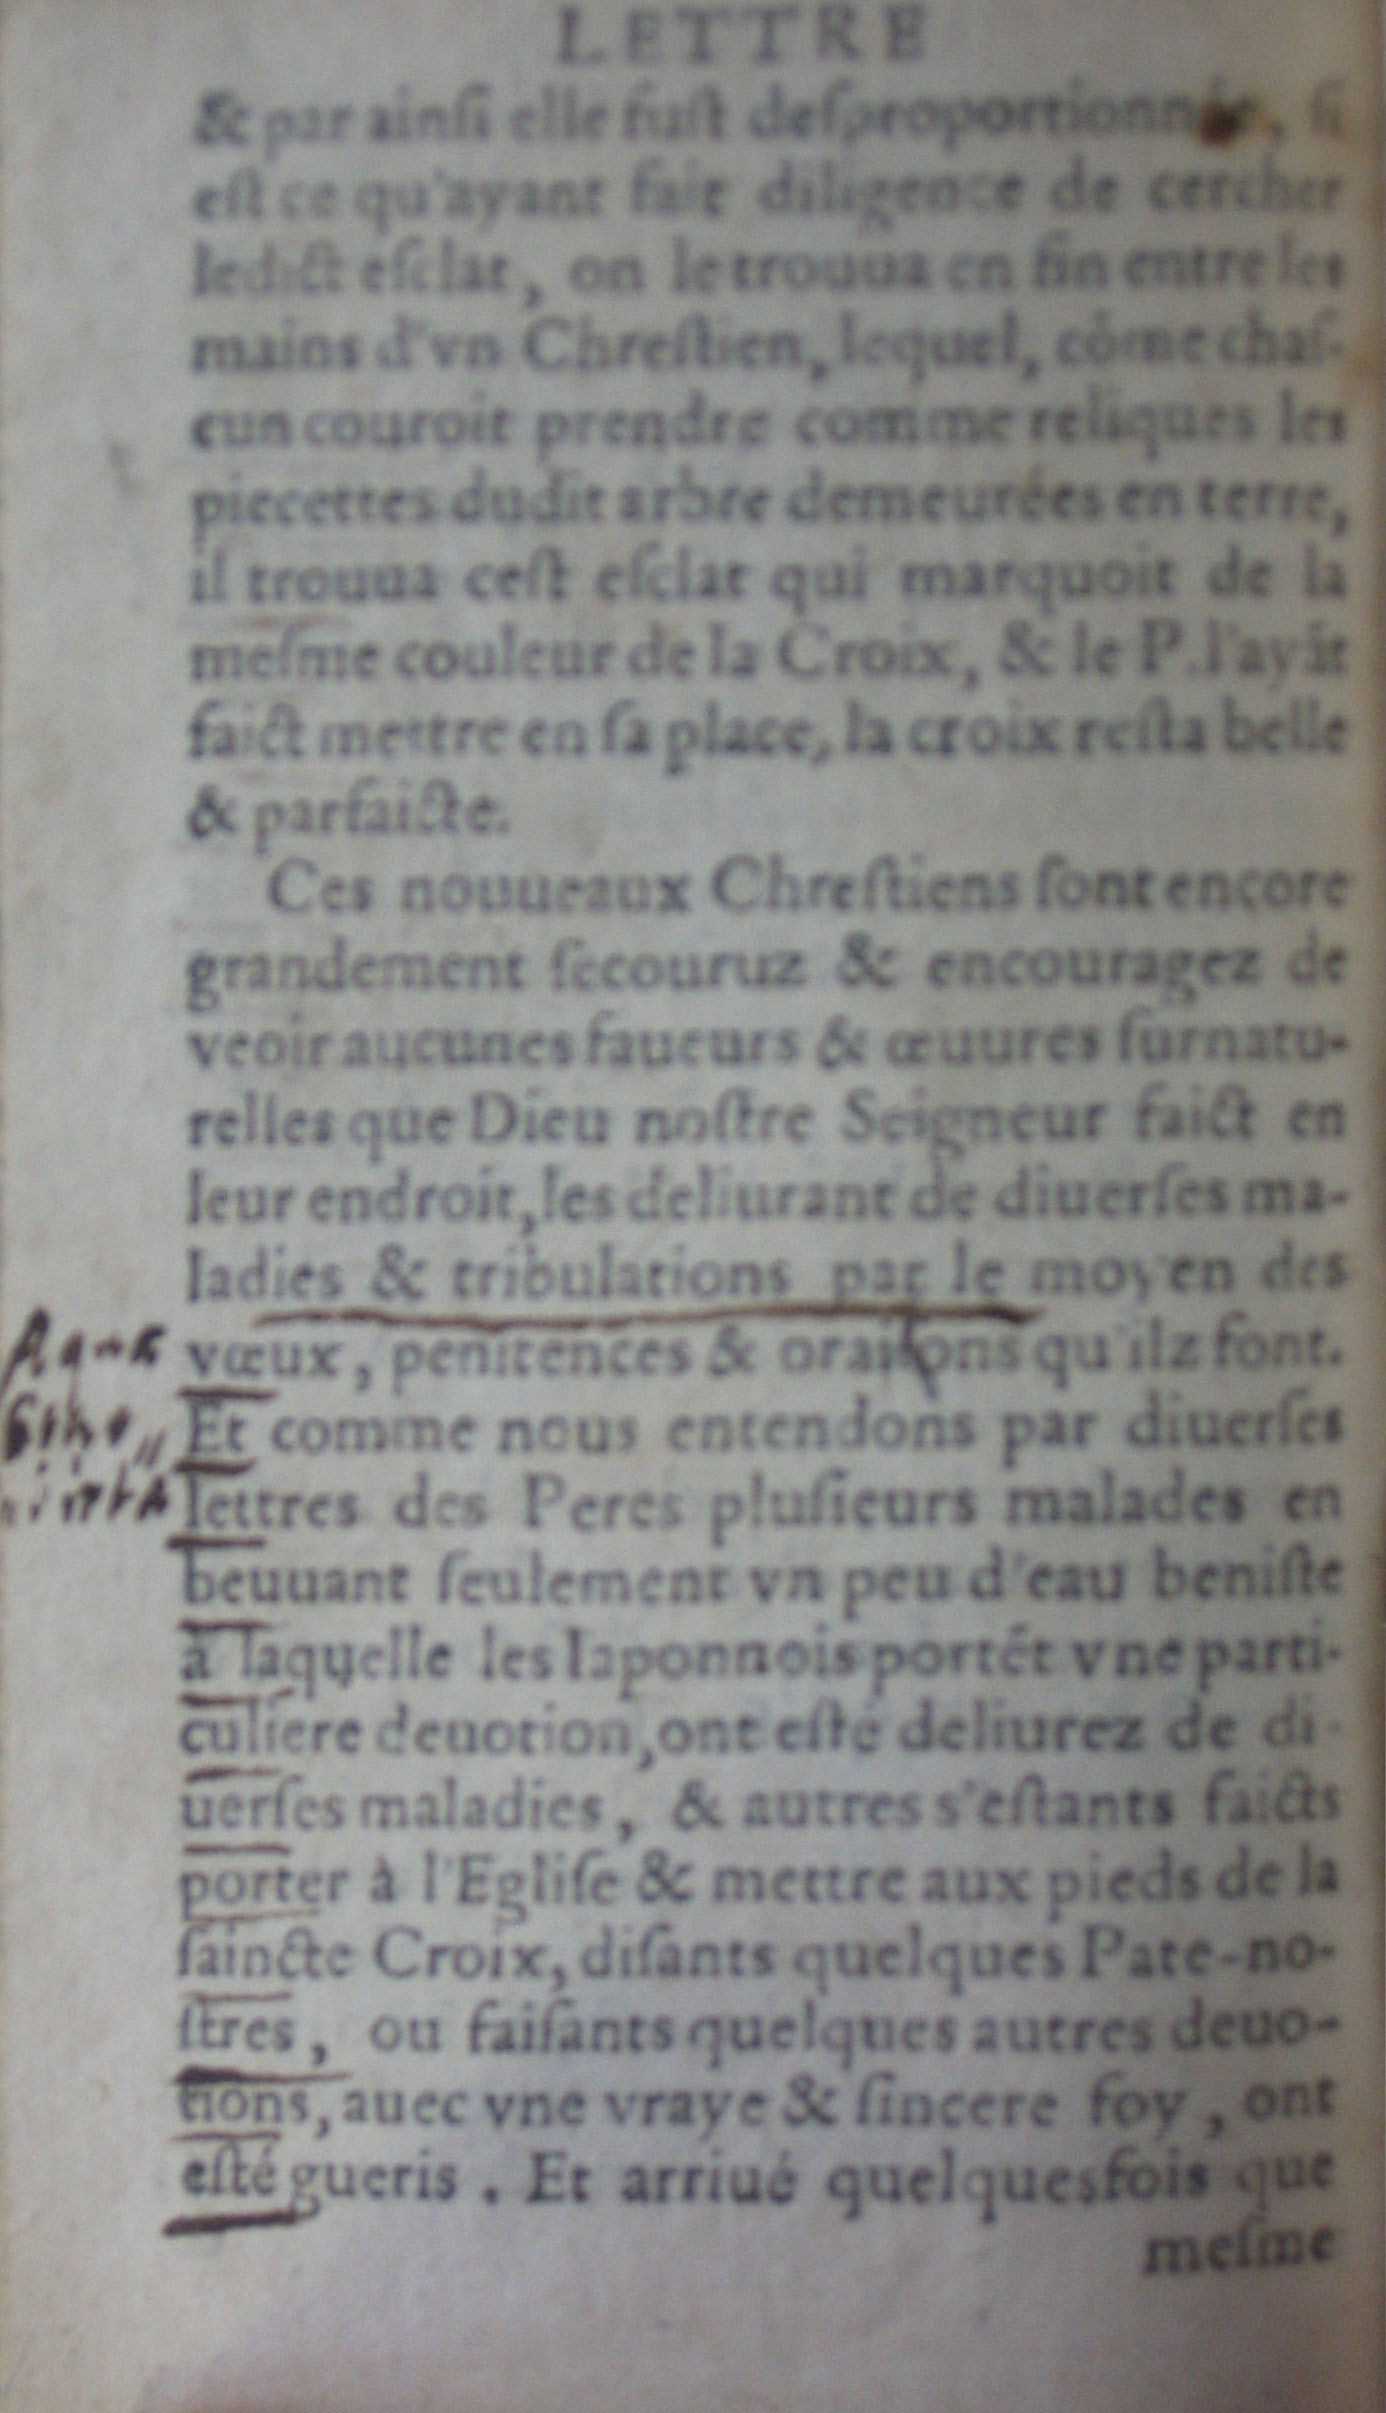 LETTRE
& par ainſi elle fuſt deſproportionnée, ſi
eſt ce qu'ayant fait diligence de cercher
ledict eſclat, on le trouua en fin entre les
mains d'vn Chreſtien, lequel, cõme chaſ-
cun couroit prendre comme reliques les
piecettes dudit arbre demeurées en terre,
il trouua ceſt eſclat qui marquoit de la
meſme couleur de la Croix, & le P. l'ayãt
faict mettre en ſa place, la croix reſta belle
& parfaicte.
Ces nouueaux Chreſtiens ſont encore
grandement ſecouruz & encouragez de
veoir aucunes faueurs & œuures ſurnatu-
relles que Dieu noſtre Seigneur faict en
leur endroit, les deliurant de diuerſes ma-
ladies & tribulations par le moyen des
vœux, penitences & oraiſons qu'ilz font.
Et comme nous entendons par diuerſes
lettres des Peres pluſieurs malades en
beuuant ſeulement vn peu d'eau beniſte
à laquelle les Iaponnois portẽt vne parti-
culiere deuotion, ont eſté deliurez de di-
uerſes maladies, & autres s'eſtants faicts
porter à l'Egliſe & mettre aux pieds de la
ſaincte Croix, diſants quelques Pate-no-
ſtres, ou faiſants quelques autres deuo-
tions, auec vne vraye & ſincere foy, ont
eſté gueris. Et arriué quelquesfois que
meſme
Aqua